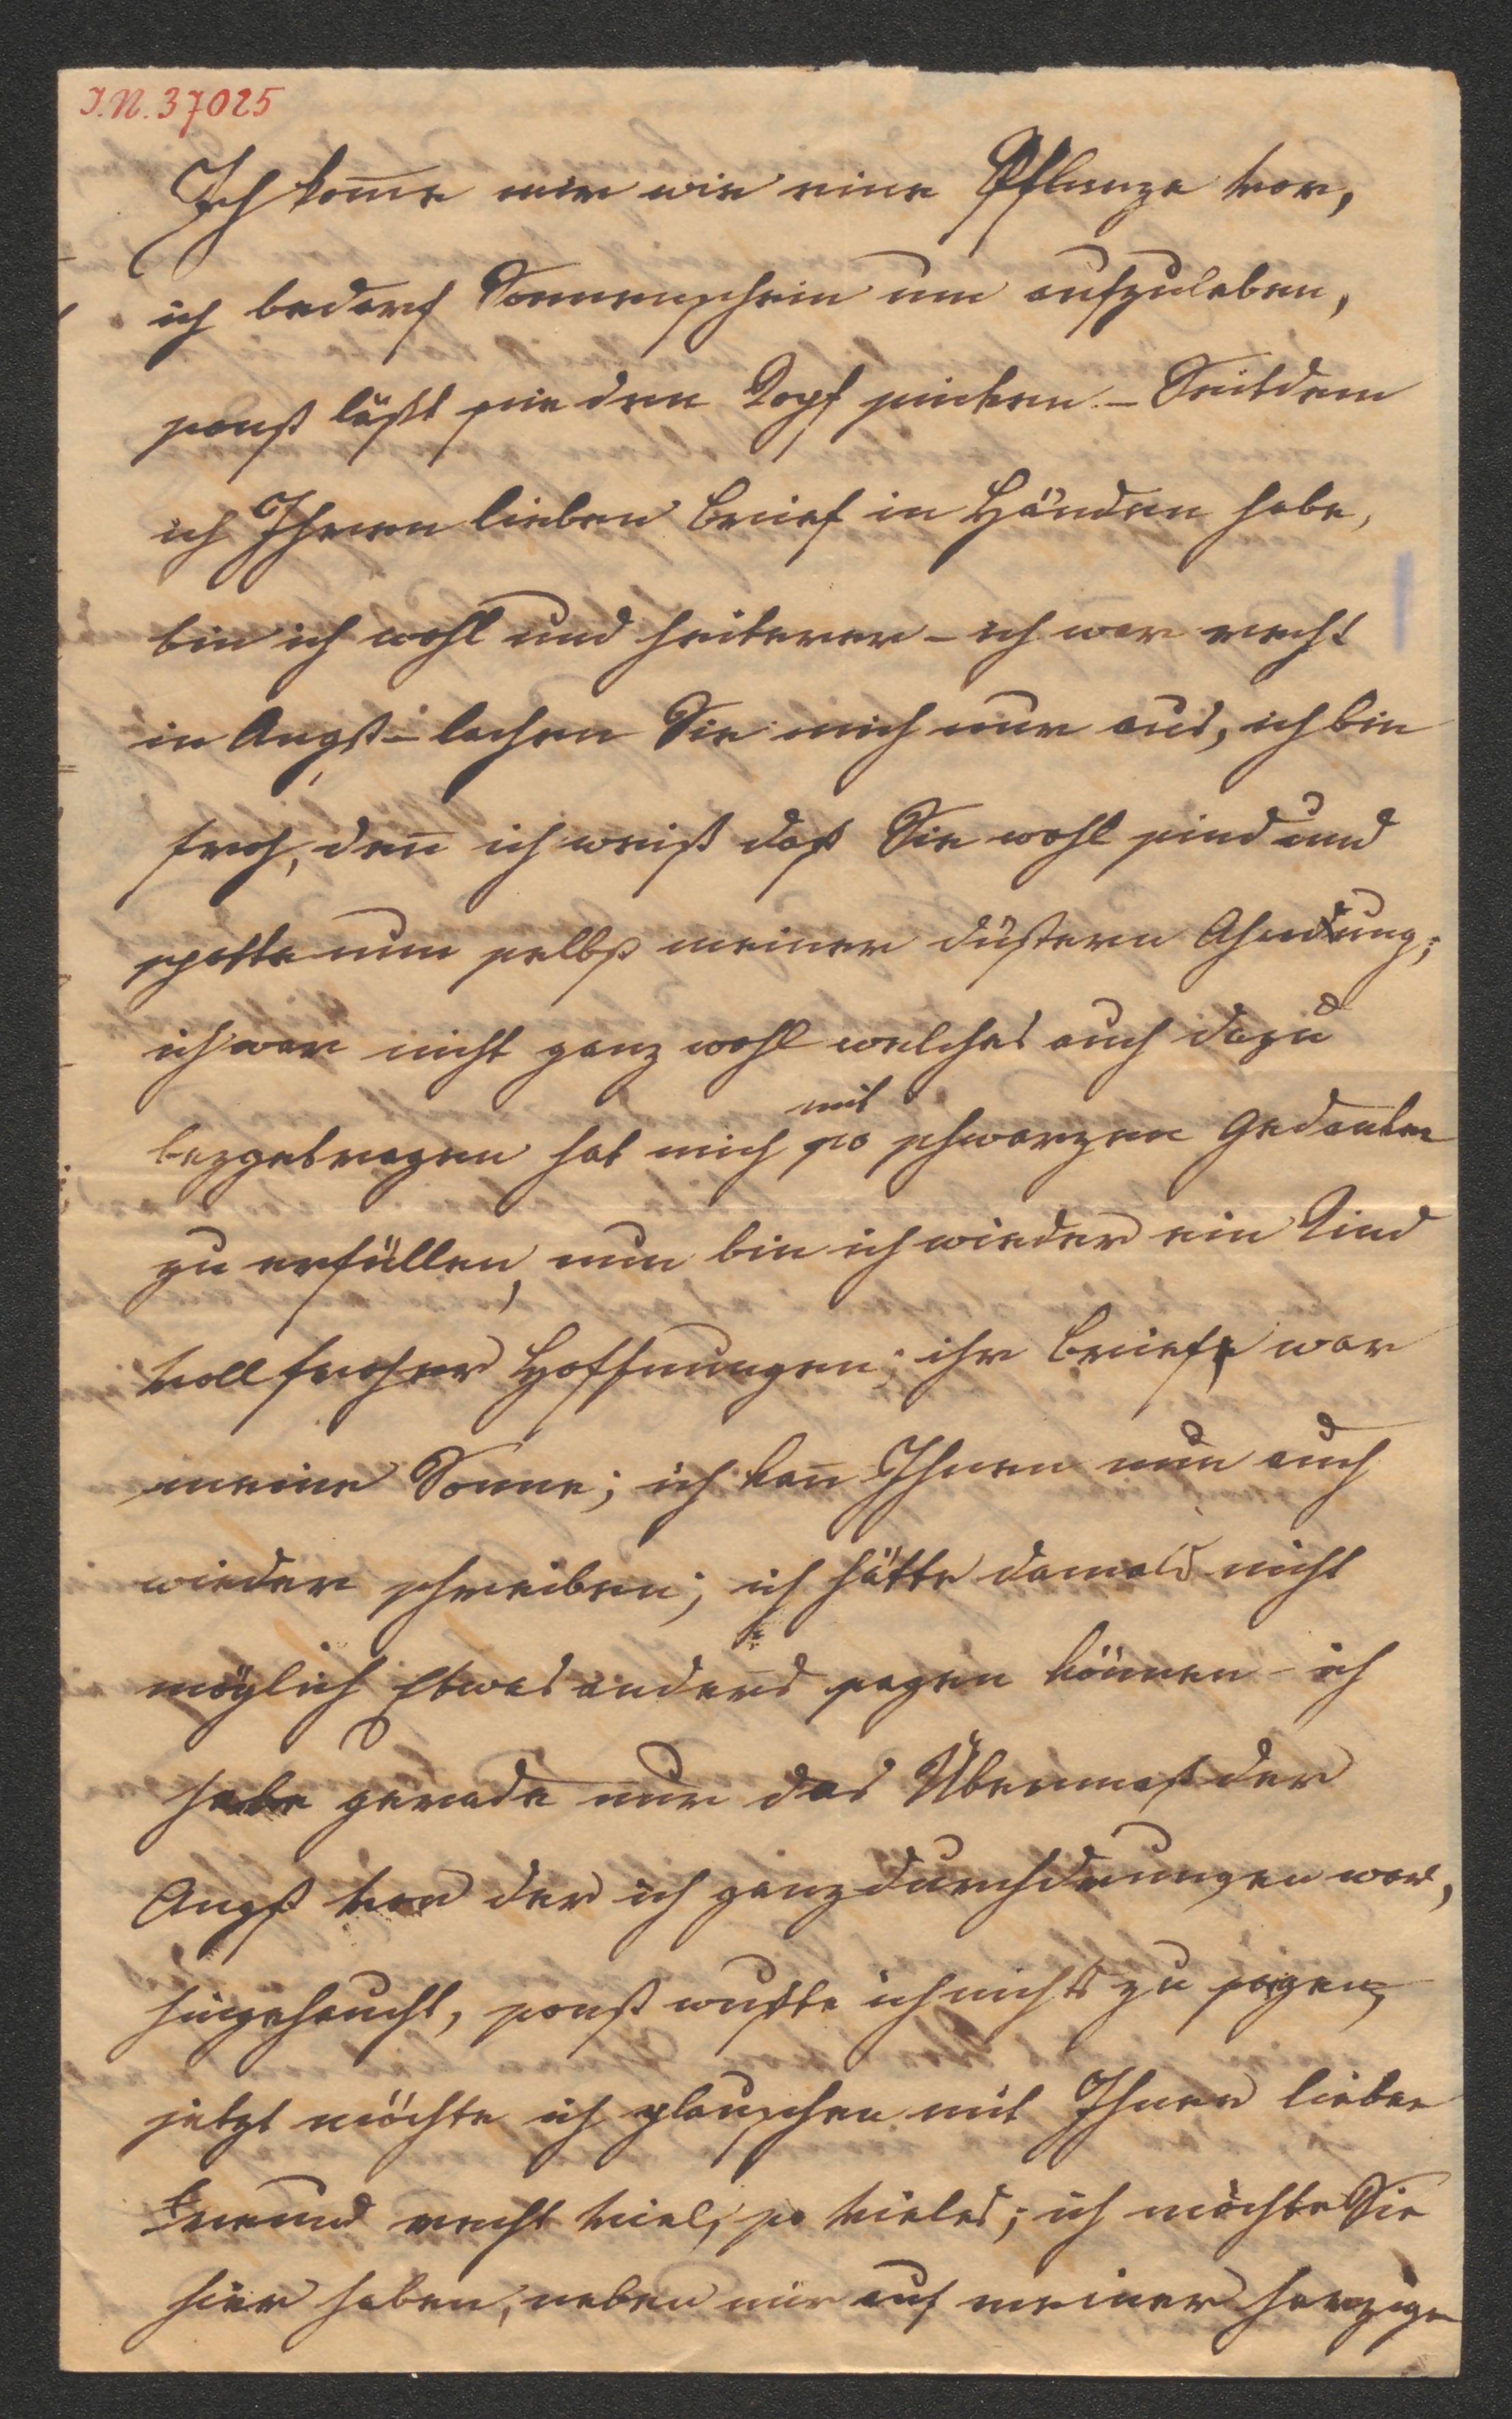 I.N. 37025
Ich kom̄e mir wie eine Pflanze vor,
ich bedarf Sonnenschein um aufzuleben,
sonst läßt sie den Kopf sinken. – Seitdem
ich Ihren lieben Brief in Händen habe,
bin ich wohl und heiterer – ich war recht
in Angst – lachen Sie mich nur aus, ich bin
froh, den̄ ich weiß daß Sie wohl sind und
spotte nun selbst meiner düstern Ahndung;
ich war nicht ganz wohl welches auch dazu
beygetragen hat mich mit so schwarzen Gedanken
zu erfüllen, nun bin ich wieder ein Kind
voll froher Hoffnungen; ihr Brief war
meine Sonne; ich kan̄ Ihnen nun auch
wieder schreiben; ich hätte damals nicht
möglich Etwas anders sagen können – ich
habe gerade nur das Übermaß der
Angst von der ich ganz durchdrungen war,
hingehaucht, sonst wußte ich nichts zu sagen,
jetzt möchte ich plauschen mit Ihnen lieber
Freund recht viel, so vieles; ich möchte Sie
hier haben, neben mir auf meiner herzigen